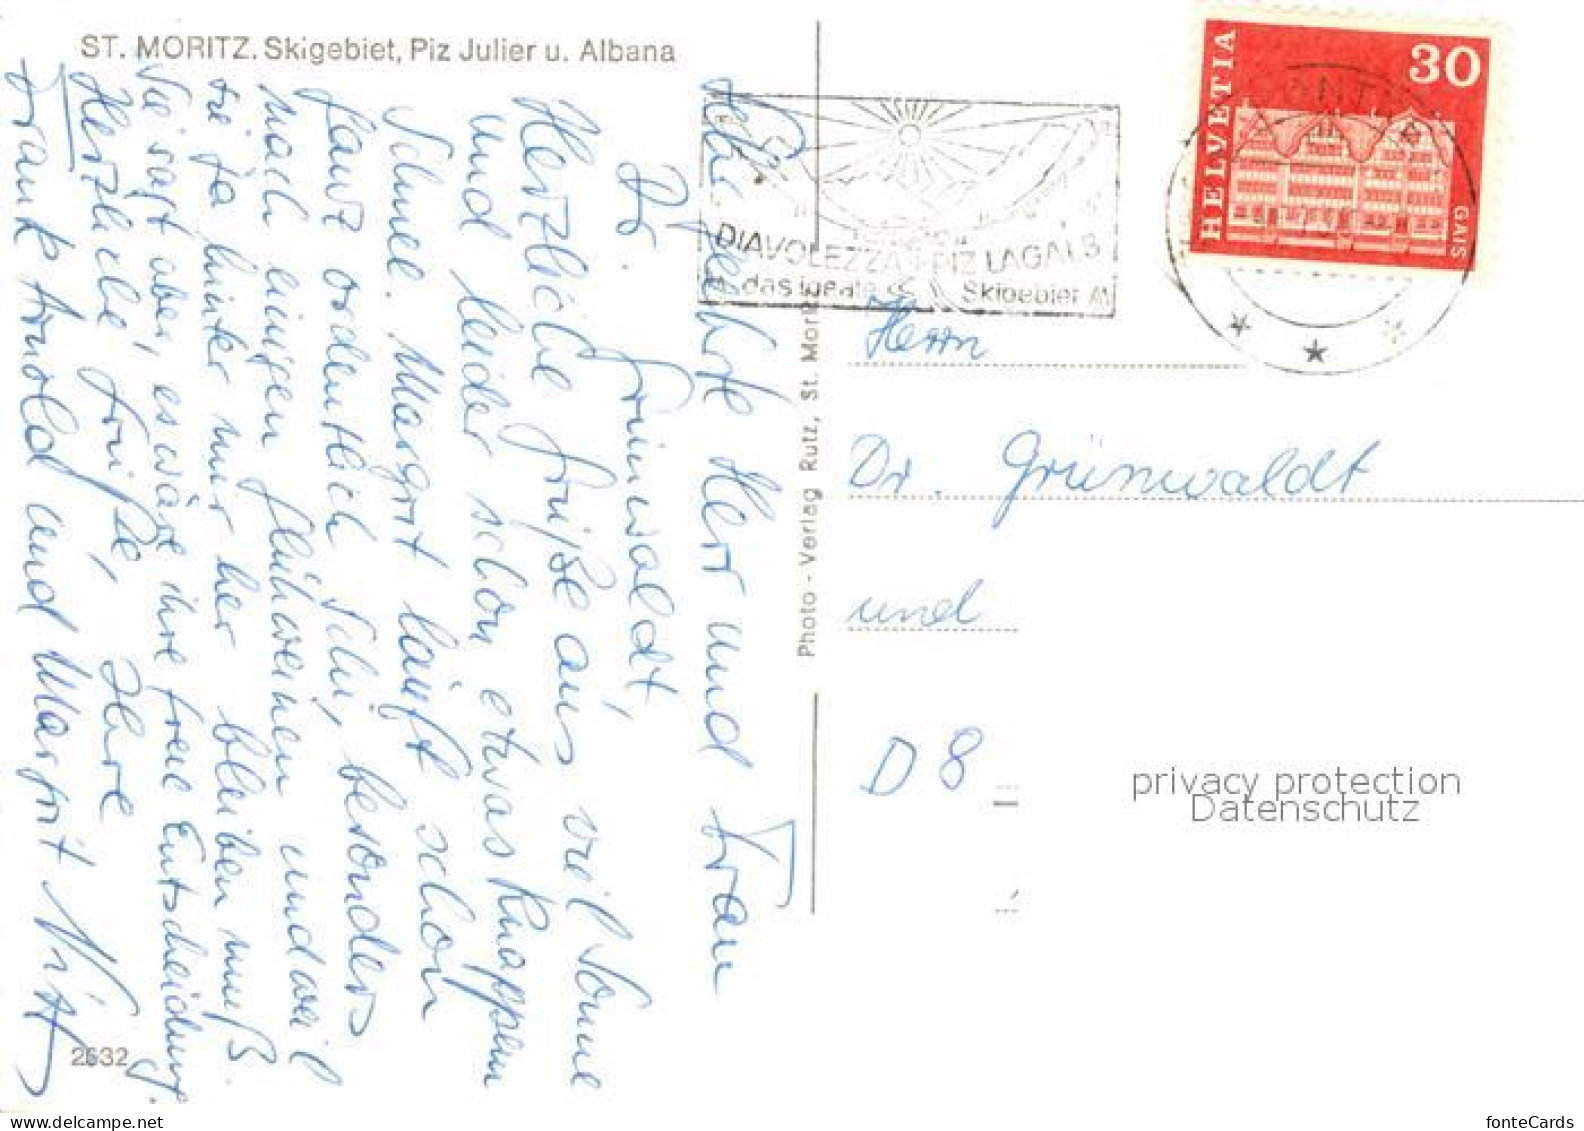 ST. MORITZ. Skigebiet, Piz Julier u. Albana
Sehr geehrte Herr und Frau
Dr. Grünwaldt,
Herzliche Grüße aus viel Sonne
und leider schon etwas knappem
Schnee. Margrit läuft schon
ganz ordentlich Ski, besonders
nach einigen Glühweinen und weil
sie ja hinter mir her bleiben muß.
Sie sagt aber, es wäre ihre freie Entscheidung.
Herzliche Grüße, Ihre
Frank Arnold und Margrit
2632
Photo-Verlag Rutz, St. Moritz
DIAVOLEZZA + PIZ LAGALB
das ideale Skigebiet
HELVETIA
30
GAIS
Herrn
Dr. Grünwaldt
und
D 8
privacy protection
Datenschutz
fonteCards